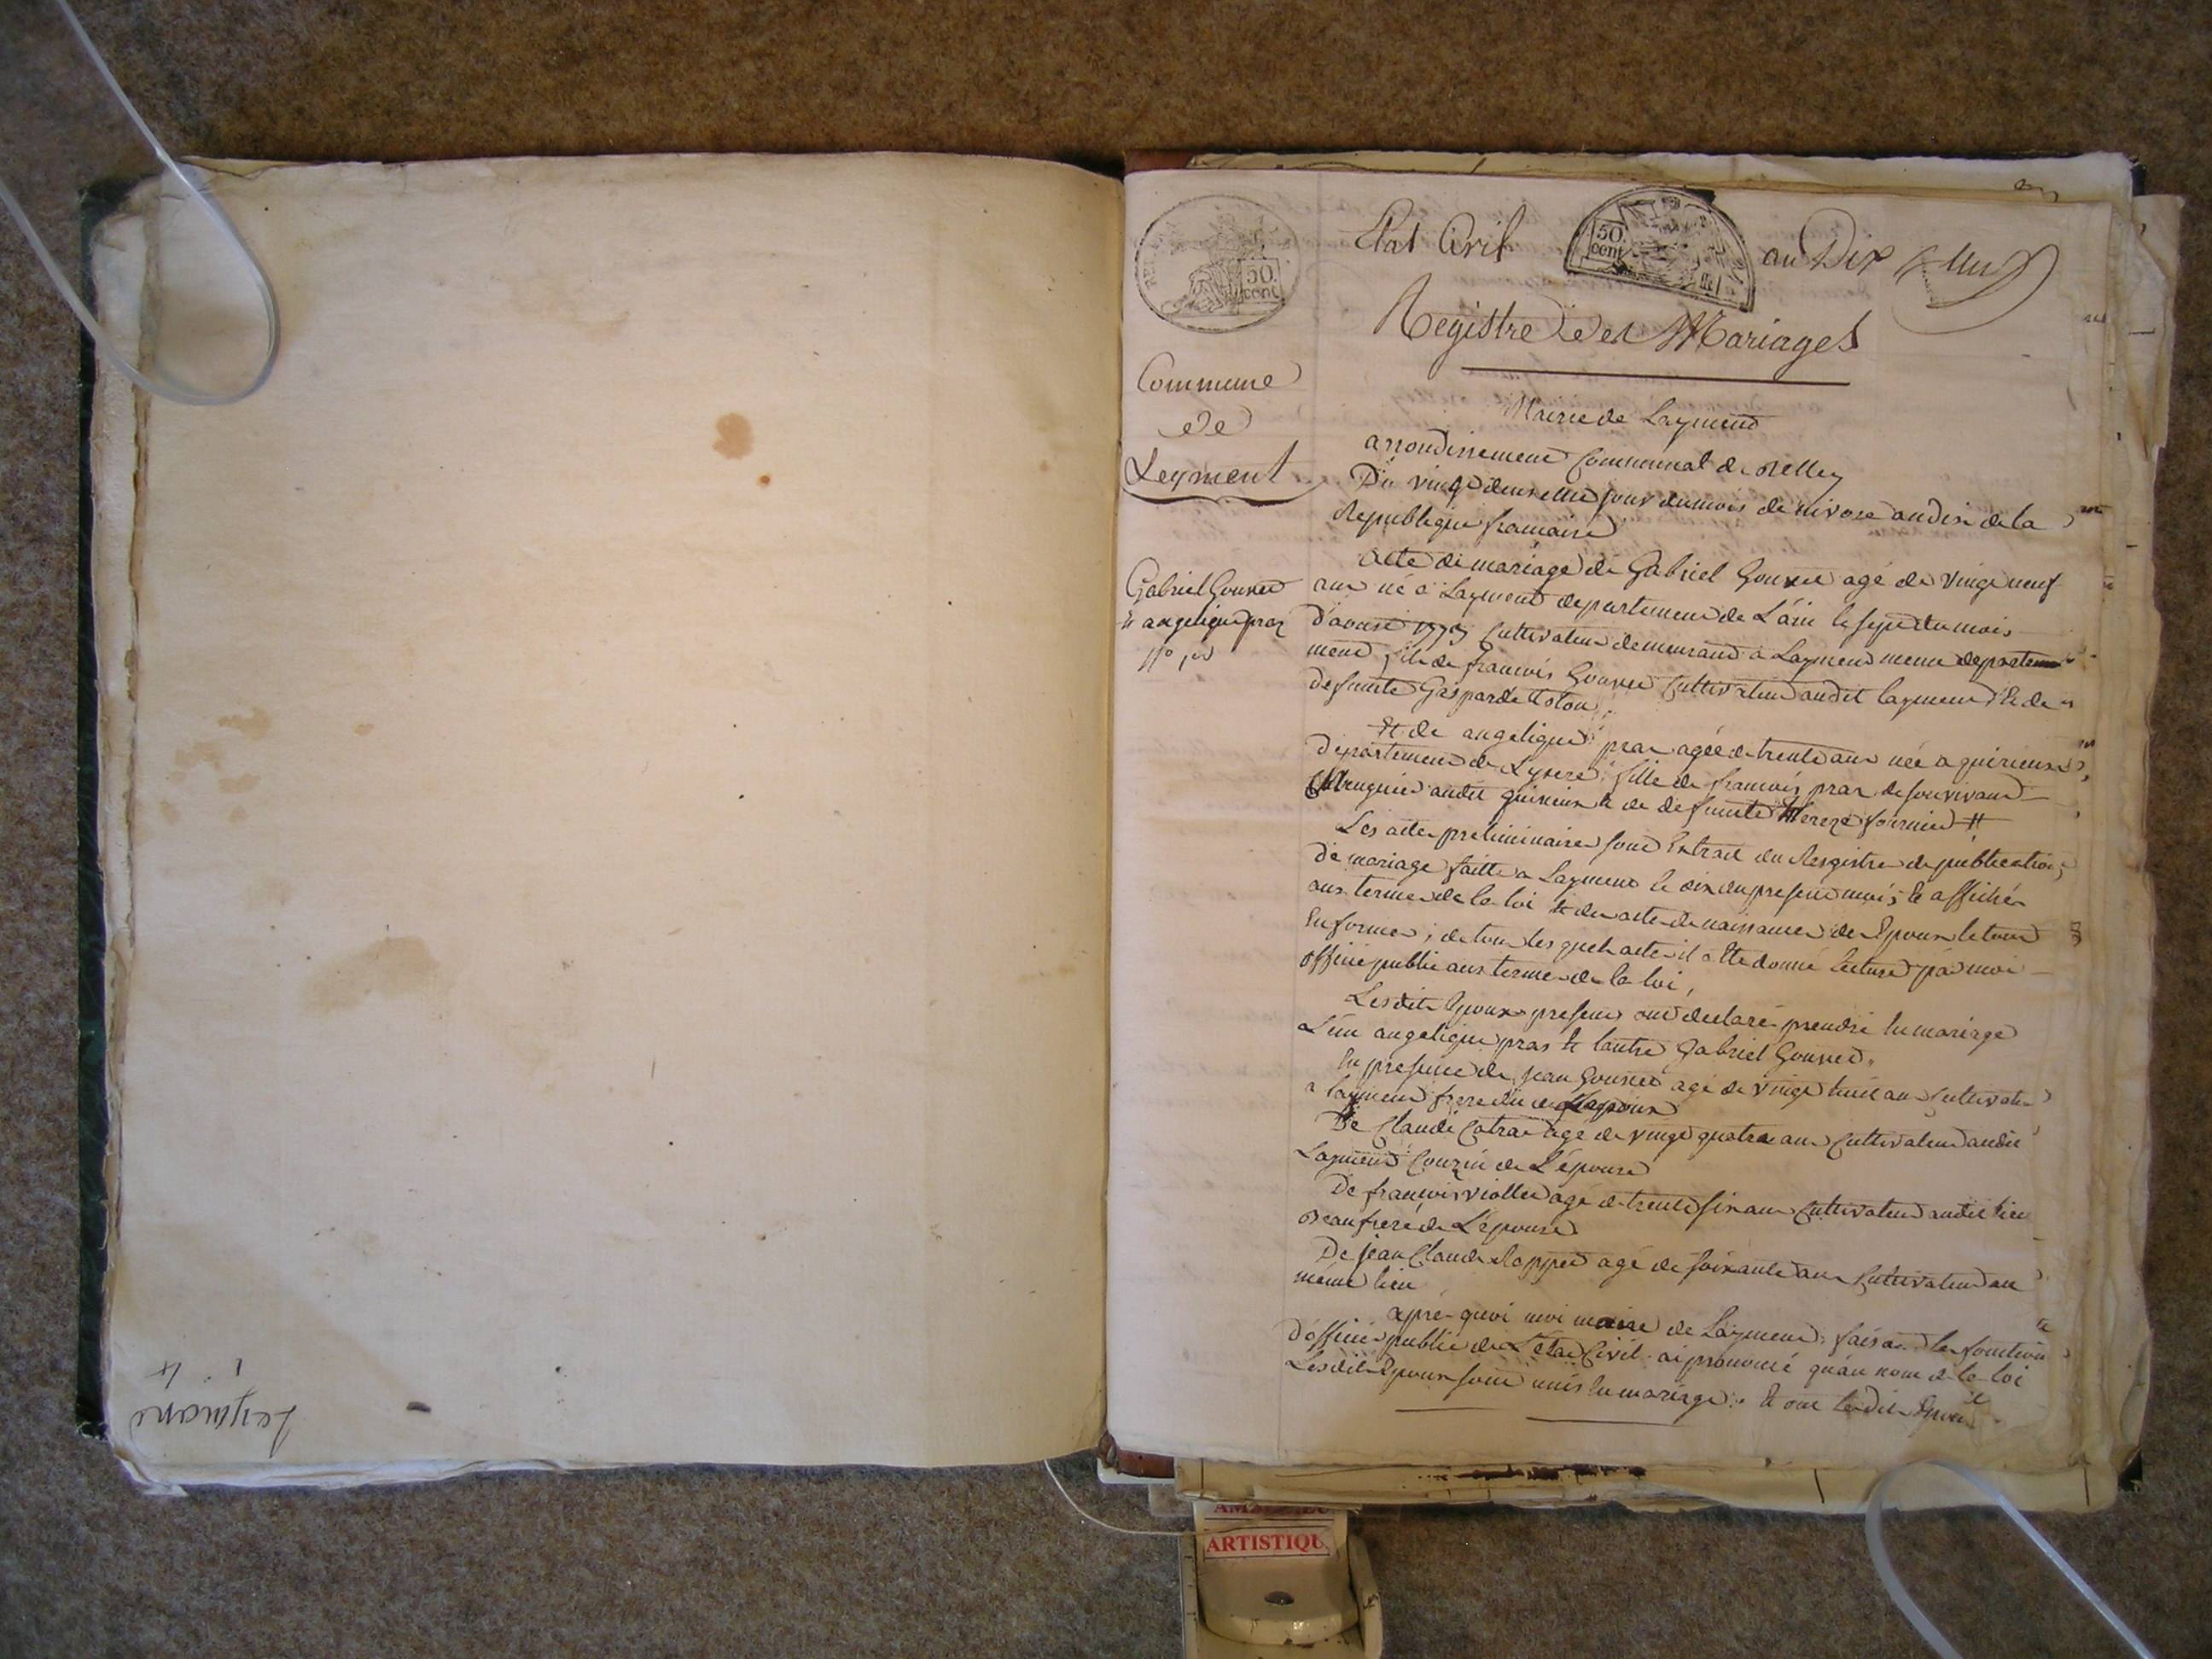 50.
cent
Etat Civil
50.
cent
an Dix
un
Registre des Mariages
Commune
de
Leyment
Mairie de Layment
arrondissement Communal de Belley
Du vingt deuxieme jour du mois de nivose an dix de la
Republique francaise
Gabriel Gounet
et angelique praz
Acte de mariage de Gabriel Gounet agé de vingt neuf
ans né à Layment departement de L'ain le sept du mois
D'aoust 1773 Cultivateur demeurant à Layment meme departem
ment fils de francois Gounet Cultivateur audit layment Et de
defunte Gasparde
Et de angelique praz agée de trente ans née a quirieux
Departement de Lysere, fille de francois praz de son vivant
audit quirieux et de defunte Thereze fournier #
Les actes preliminaires sont Extrait du Registre de publication
de mariage faitte a Layment le dix du present mois, Et affichés
aux termes de la loi Et des actes de naissance des Epoux le tout
En formes ; de tous les quels actes il a Ette donné lecture par moi
officié public aux termes de la loi,
Lesdits Epoux presens ont declaré prendre En mariage
L'un angelique pras Et lautre Gabriel Gounet.
En presence de jean Gounet agé de vingt huit ans Cultivateur
a layment frere de
De Claude agé de vingt quatre ans Cultivateur audit
Layment Couzin de L'épouse
De francois viollet agé de trente six ans Cultivateur audit lieu
Beau frere de L'épouse
De jean Claude agé de soixante ans Cultivateur au
même lieu
après quoi moi maire de Layment, faisant les fonctions
D'officié public de L'état Civil ai prononcé qu'au nom de la loi
Lesdits Epoux sont unis En mariage. Et ont lesdits Epoux
Leyment
4
ARTISTIQU